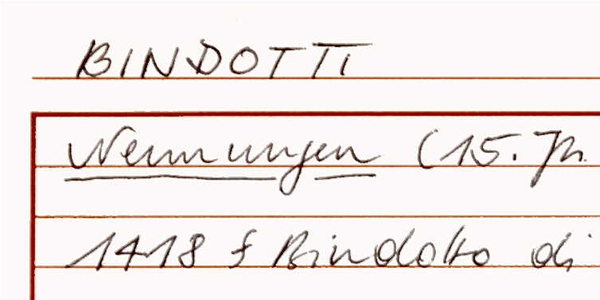 BINDOTTI
Nennungen (15. Jh.
1418 f Bindotto di